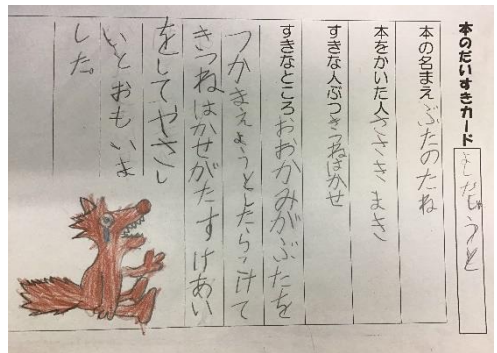 本のだいすきカード
本の名まえ ぶたのたね
本をかいた人 ささき まき
すきな人ぶつ きつねはかせ
すきなところ おおかみがぶたを
つかまえようとしたらこけて
きつねはかせがたすけあい
をしてやさし
いとおもいま
した。